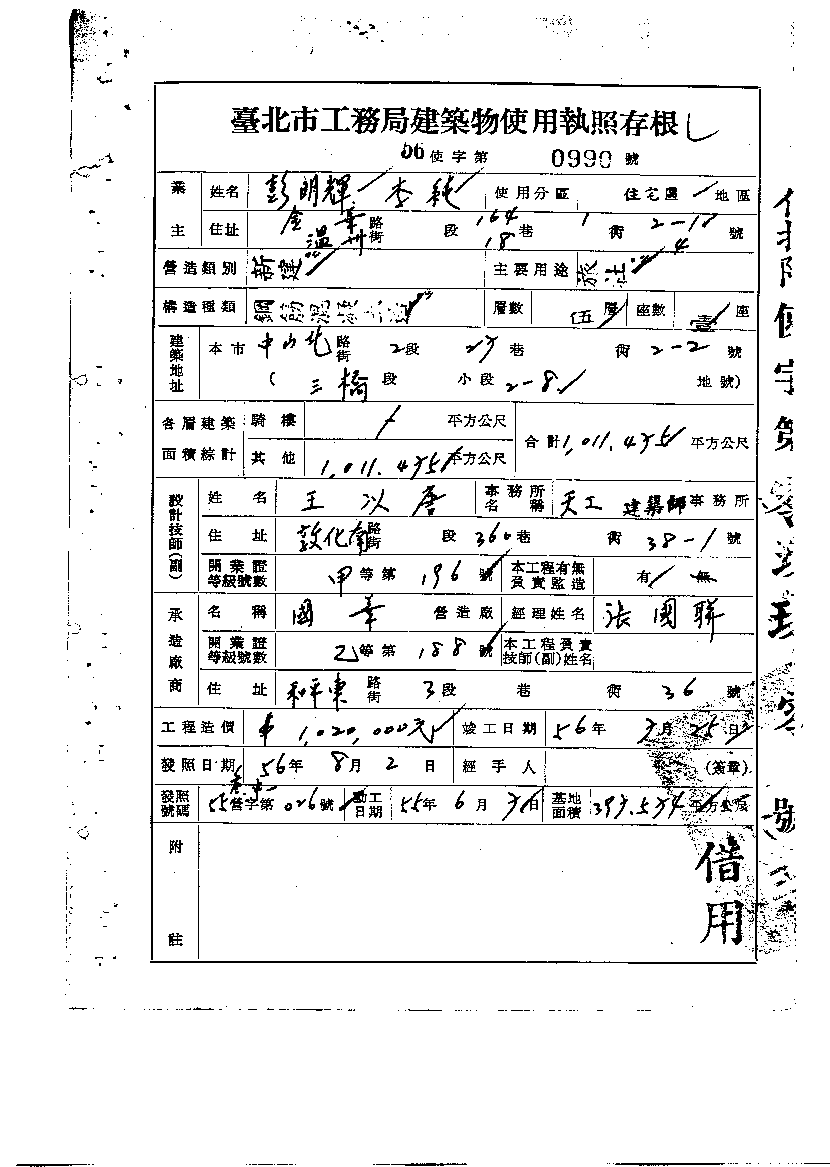 臺北市工務局建築物使用執照存根
06使字第 0990 號
業主 姓名 彭明輝 李純 使用分區 住宅區 地區
住址 金華 溫州 路街 段 164 18 巷 1 衖 2-1 4 號
營造類別 新建 主要用途 旅社
構造種類 鋼筋混凝土造 層數 伍層 座數 壹座
建築地址 本市 中山北 路街 2段 27巷 衖 2-2 號
( 三橋 段 小段 2-8 地號)
各層建築面積綜計 騎樓 平方公尺 合計 1,011.475 平方公尺
其他 1,011.475 平方公尺
設計技師(副) 姓名 王以唐 事務所名稱 天工 建築師 事務所
住址 敦化南 路街 段 360巷 衖 38-1 號
開業證等級號數 甲等第 196 號 本工程有無負責監造 有 無
承造廠商 名稱 國華 營造廠 經理姓名 張國聯
開業證等級號數 乙等第 188 號 本工程負責技師(副)姓名
住址 和平東 路街 3段 巷 衖 36 號
工程造價 1,020,000元 竣工日期 56年 7月 25日
發照日期 56年 8月 2日 經手人 (簽章)
發照號碼 55營字第 026 號 動工日期 55年 6月 日 基地面積 397.574 平方公尺
附註
借用
使字第
號